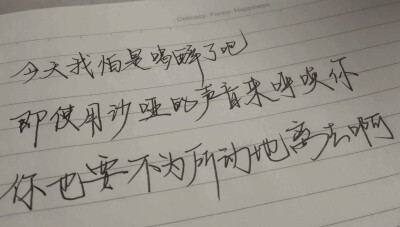 Delicacy, Family, Happiness
今天我怕是喝醉了吧
即使用沙哑的声音来呼唤你
你也要不为所动地离去啊